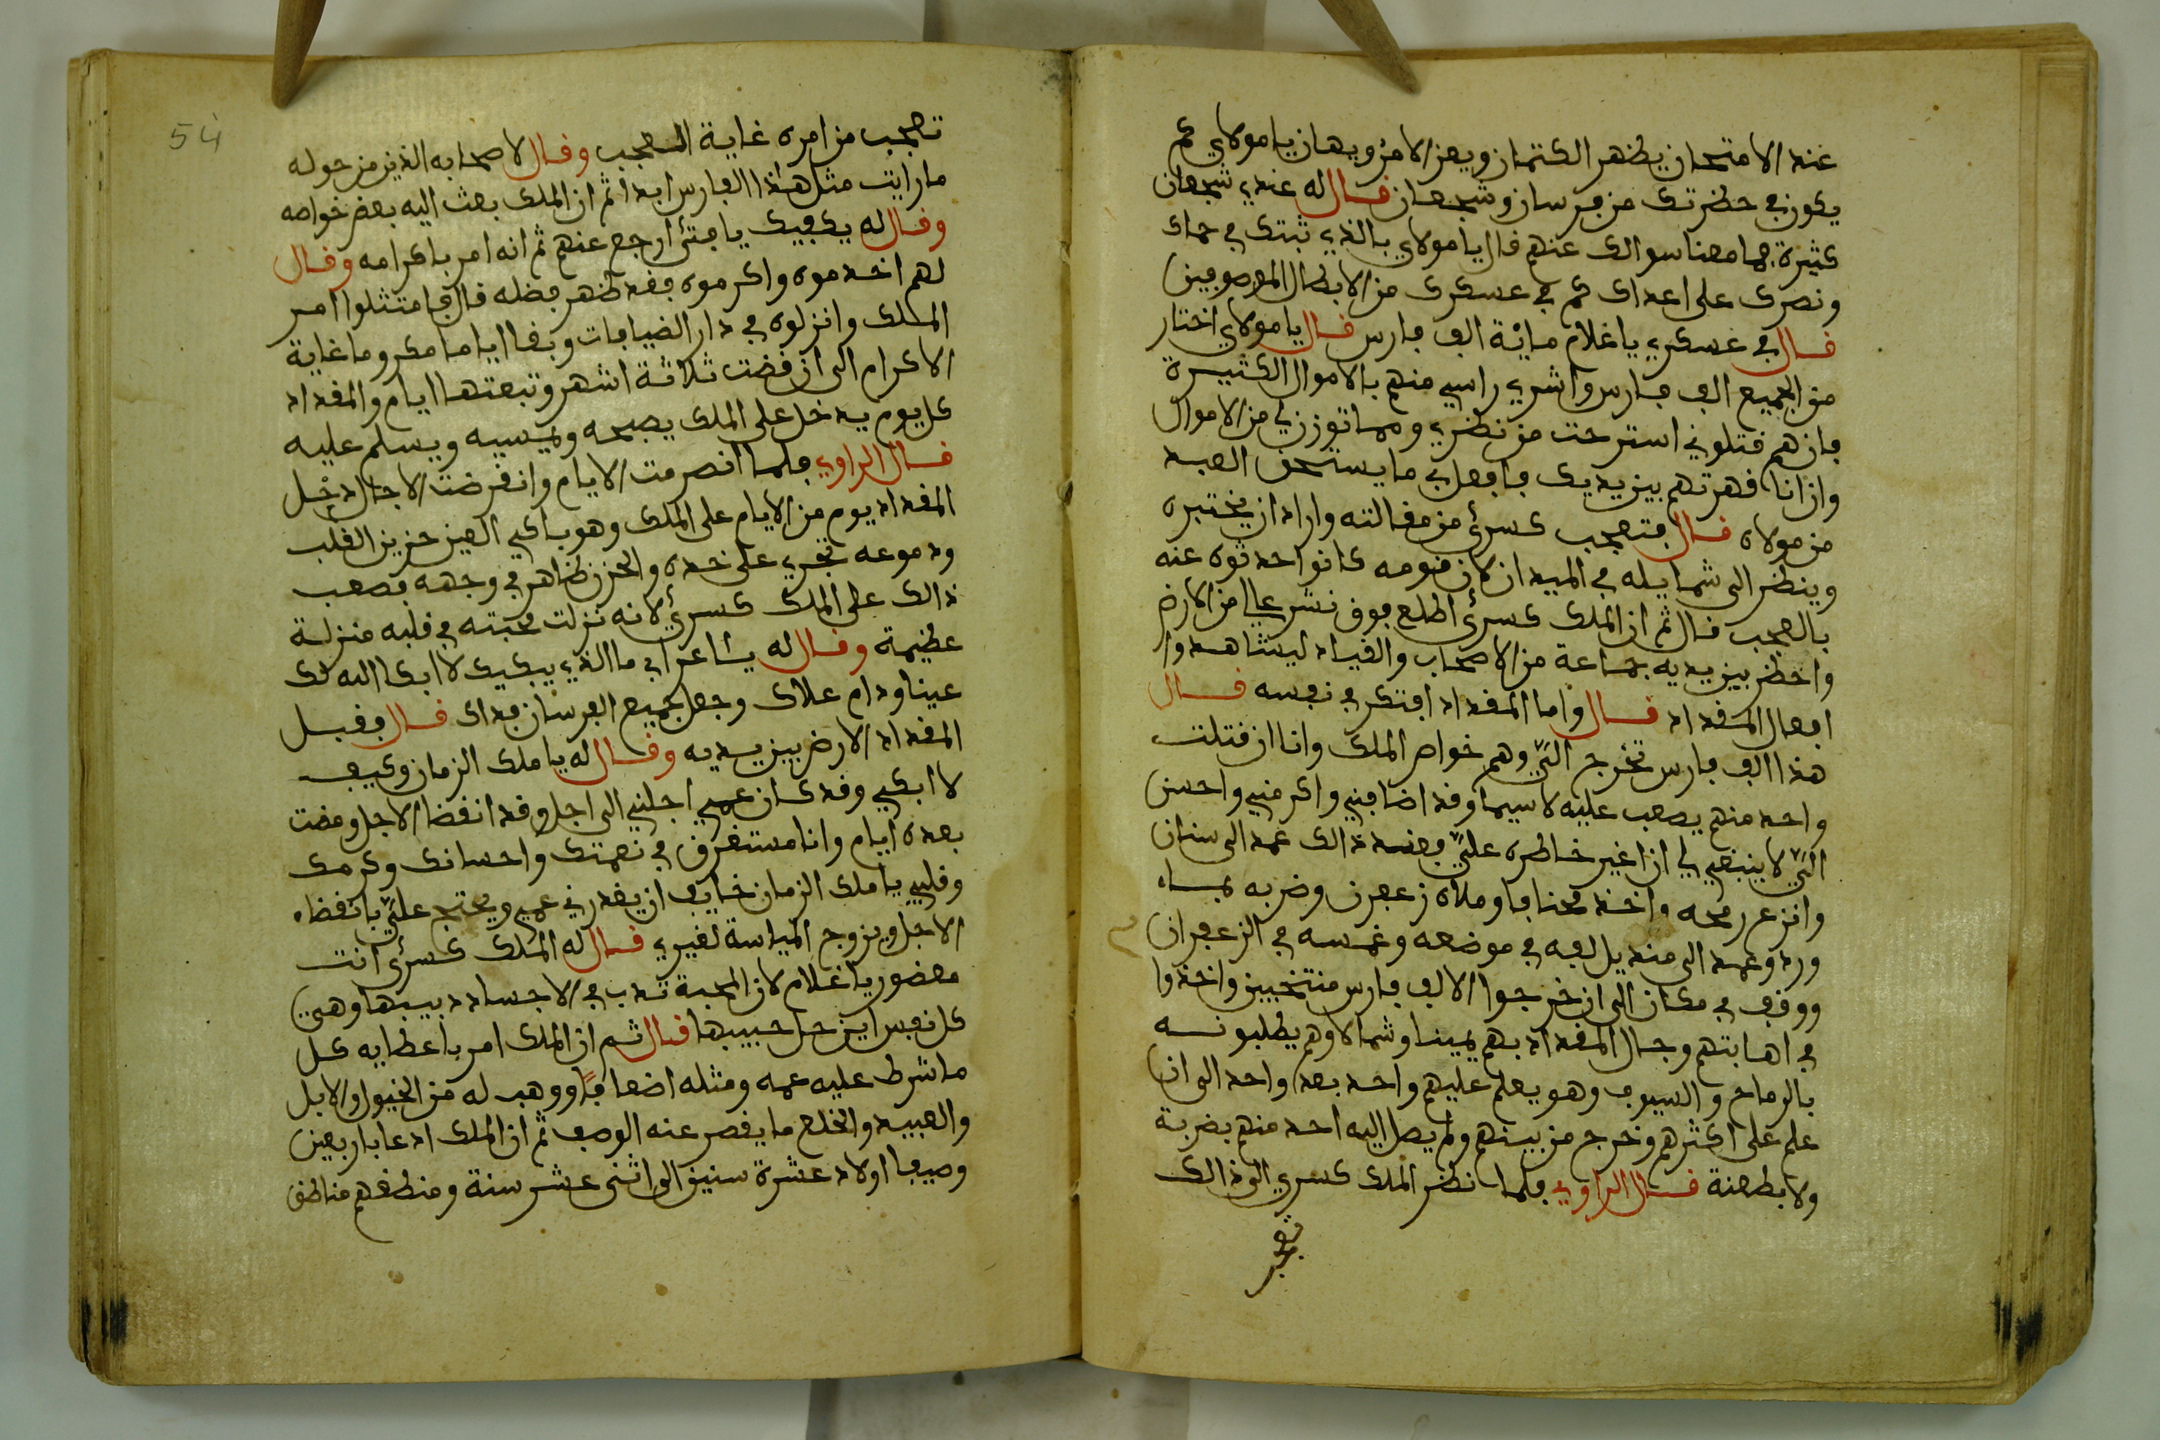 عند الامتحان يظهر الكتمان ويعز الامر ويهان يا مولاي كم
يكون في حظرتك من فرسان وشجعان قال له عندي شجعان
كثيرة فما معنا سوالك عنهم قال يا مولاي بالذي ثبتك في حماك
ونصرك على اعداك كم في عسكرك من الابطال الموصوفين
قال في عسكري يا غلام مائة الف فارس قال يا مولاي اختار
من الجميع الف فارس واشري راسي منهم بالاموال الكثيرة
فان هم قتلوني استرحت من نظري ومما توزن لي من الاموال
وان انا قهرتهم بين يديك فافعل بي ما يستحق العبد
من مولاه قال فتعجب كسرى من مقالته واراد ان يختبره
وينظر الى شمايله في الميدان لان قومه كانوا حدثوه عنه
بالعجب قال ثم ان الملك كسرى اطلع فوق نشر عالي من الارض
واحظر بين يديه جماعة من الاصحاب والقياد ليشاهدوا
افعال المقداد قال واما المقداد افتكر في نفسه قال
هذا الف فارس تخرج اليّ وهم خواص الملك وانا ان قتلت
واحد منهم يصعب عليه لا سيما وقد اضافني واكرمني واحسن
اليّ لا ينبغي لي ان اغير خاطره عليّ فعند ذالك عمد الى سنان
وانزع رمحه واخذ محنافا وملاه زعفرن وضربه بماء
ورد وعمد الى منديل لفه في موضعه وغمسه في الزعفران
ووقف في مكان الى ان خرجوا الالف فارس منتخبين واخذوا
في اهابتهم وجال المقداد بهم يمينا وشمالا وهم يطلبونه
بالرماح والسيوف وهو يعلم عليهم واحد بعد واحد الى ان
علم على اكثرهم وخرج من بينهم ولم يصل اليه احد منهم بضربة
ولا بطعنة قال الراوي فلما نظر الملك كسرى الى ذالك
تعجب
54
تعجب من امره غاية العجب وقال لاصحابه الذين من حوله
ما رايت مثل هذا الفارس ابدا ثم ان الملك بعث اليه بعض خواصه
وقال له يكفيك يا فتى ارجع عنهم ثم انه امر باكرامه وقال
لهم اخدموه واكرموه فقد ظهر فضله قال فامتثلوا امر
الملك وانزلوه في دار الضيافات وبقا اياما مكروما غاية
الاكرام الى ان قضت ثلاثة اشهر وتبعتها ايام والمقداد
كل يوم يدخل على الملك يصبحه ويمسيه ويسلم عليه
قال الراوي فلما انصرمت الايام وانقرضت الاجال دخل
المقداد يوم من الايام على الملك وهو باكي العين حزين القلب
ودموعه تجري على خده والحزن ظاهر في وجهه فصعب
ذالك على الملك كسرى لانه نزلت محبته في قلبه منزلة
عظيمة وقال له يا شاعرا في ما الذي يبكيك لا ابكا الله لك
عينا ودام علاك وجعل جميع الفرسان فداك قال فقبل
المقداد الارض بين يديه وقال له يا ملك الزمان وكيف
لا ابكي وقد كان عمي اجلني الى اجل وقد انقضا الاجل ومضت
بعده ايام وانا مستغرق في نعمتك واحسانك وكرمك
وقلبي يا ملك الزمان خايف ان يغدرني عمي ويحتج عليّ بانقضاء
الاجل ويزوج المياسة لغيري قال له الملك كسرى انت
معضور يا غلام لان المحبة تدب في الاجساد دبيبها وهي
كل نفس اين حل حبيبها قال ثم ان الملك امر باعطايه كل
ما شرط عليه عمه ومثله اضعافا ووهب له من الخيول والابل
والعبيد والخلع ما يقصر عنه الوصف ثم ان الملك ادعا باربعين
وصيفا اولاد عشرة سنين الى اثنى عشر سنة ومنطقهم مناطق